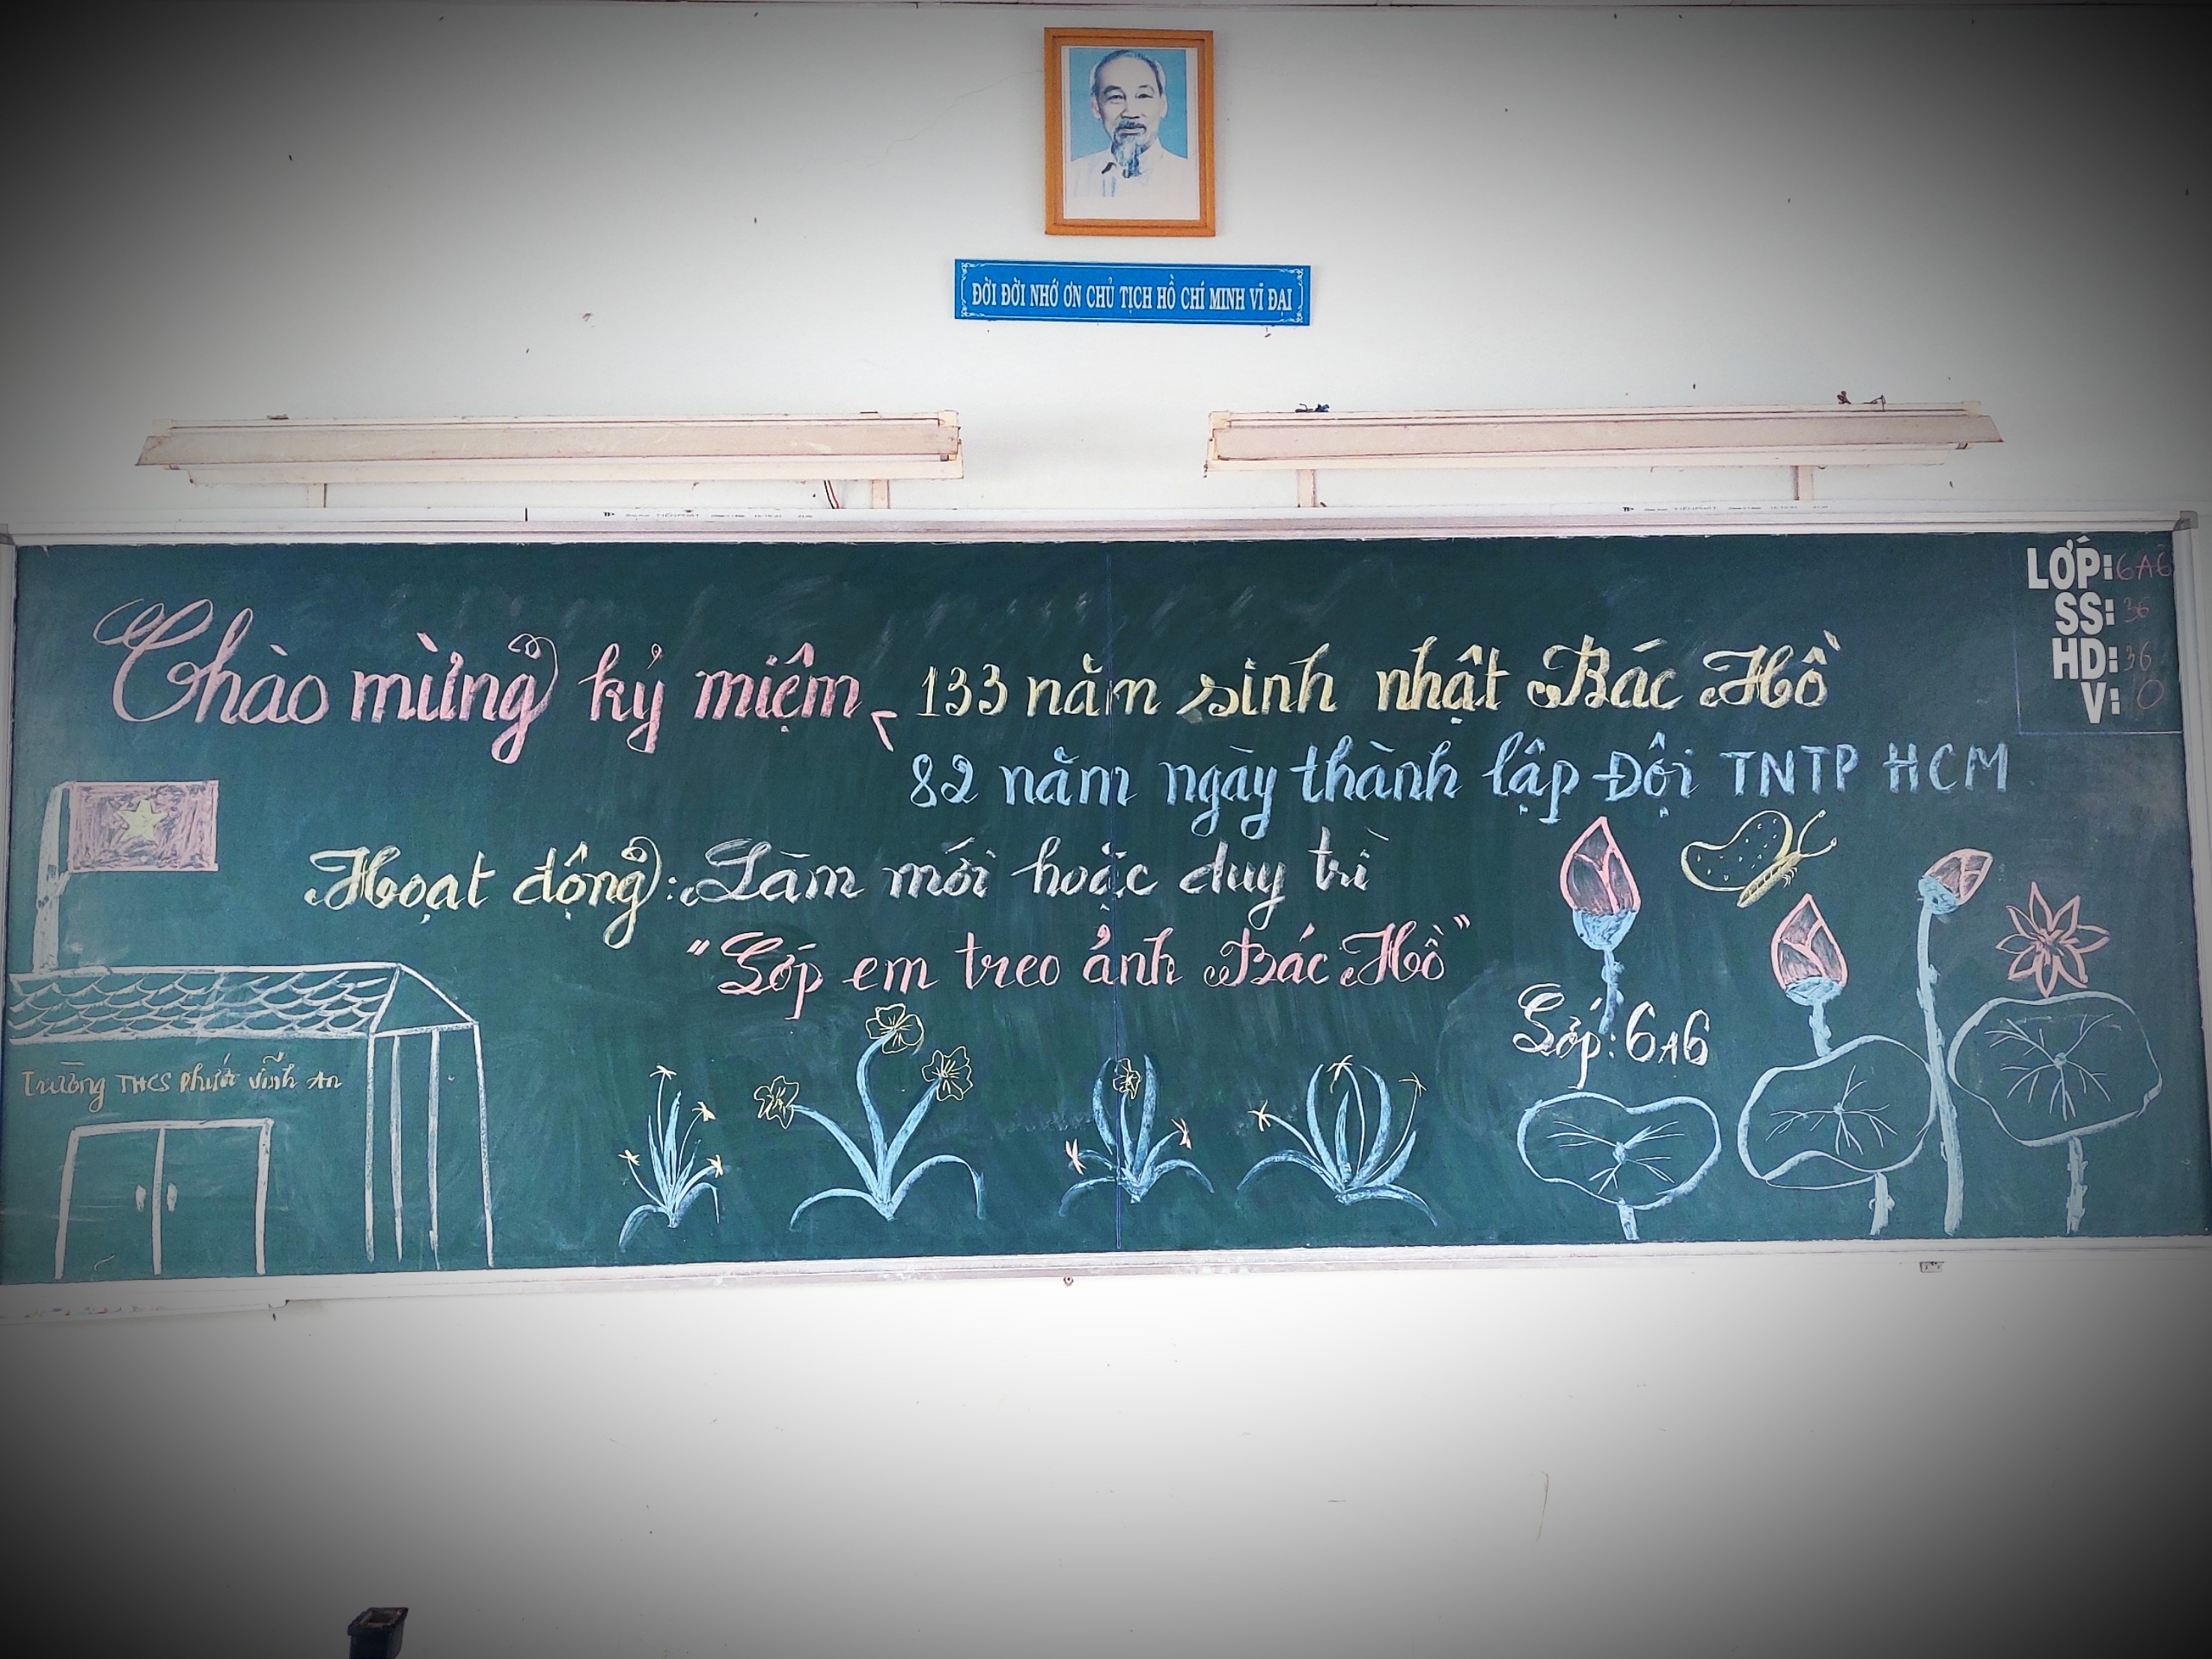 ĐỜI ĐỜI NHỚ ƠN CHỦ TỊCH HỒ CHÍ MINH VĨ ĐẠI
LỚP: 6A6
SS: 36
HD: 36
V: 0
Chào mừng kỷ miệm 133 năm sinh nhật Bác Hồ
82 năm ngày thành lập Đội TNTP HCM
Hoạt động: Làm mới hoặc duy trì
"Lớp em treo ảnh Bác Hồ"
Lớp: 6A6
Trường THCS Phước Vĩnh An